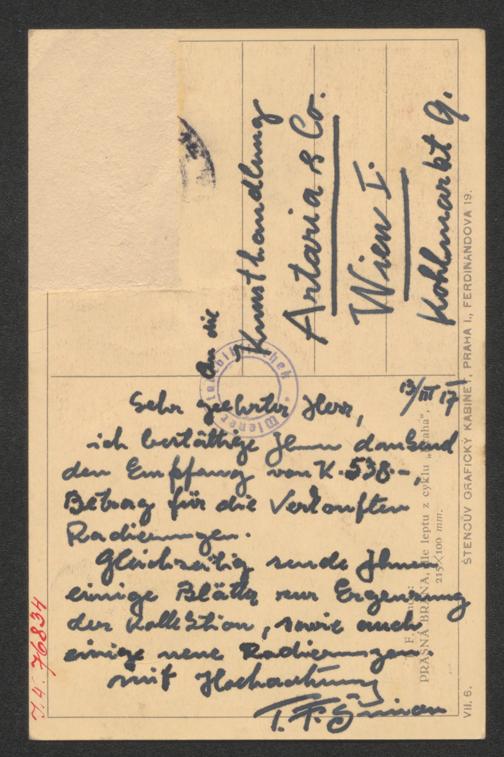 An die
Kunsthandlung
Artaria & Co.
Wien I.
Kohlmarkt 9.
13/III 17
Sehr geehrter Herr,
ich bestättige Ihnen dankend
den Empfang von K 538-,
Betrag für die Verkauften
Radierungen.
Gleichzeitig sende Ihnen
einige Blätter zur Ergenzung
der Kollektion, sowie auch
einige neue Radierungen.
mit Hochachtung
T. F. Šimon
J. N. 76834
VII. 6.
ŠTENCŮV GRAFICKÝ KABINET, PRAHA I., FERDINANDOVA 19.
PRAŠNÁ BRÁNA, dle leptu z cyklu „Praha“,
215×100 mm.
Wiener